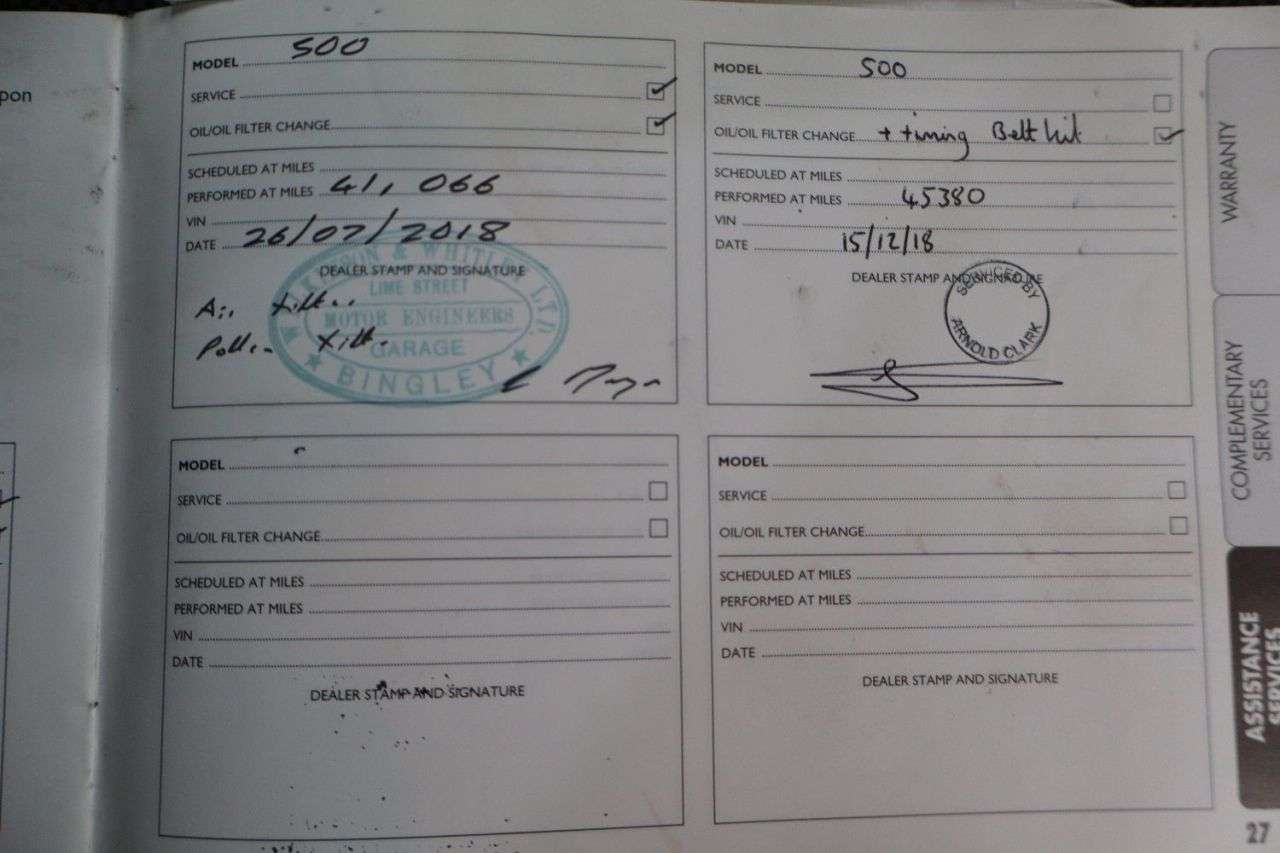 pon
MODEL 500
SERVICE ✓
OIL/OIL FILTER CHANGE ✓
SCHEDULED AT MILES
PERFORMED AT MILES 41,066
VIN
DATE 26/07/2018
DEALER STAMP AND SIGNATURE
& WHITLEY LTD.
LIME STREET
MOTOR ENGINEERS
GARAGE
BINGLEY
Air filt..
Pollen filt.
MODEL 500
SERVICE
OIL/OIL FILTER CHANGE + timing Belt kit ✓
SCHEDULED AT MILES
PERFORMED AT MILES 45380
VIN
DATE 15/12/18
DEALER STAMP AND SIGNATURE
SERVICED BY
ARNOLD CLARK
MODEL
SERVICE
OIL/OIL FILTER CHANGE
SCHEDULED AT MILES
PERFORMED AT MILES
VIN
DATE
DEALER STAMP AND SIGNATURE
MODEL
SERVICE
OIL/OIL FILTER CHANGE
SCHEDULED AT MILES
PERFORMED AT MILES
VIN
DATE
DEALER STAMP AND SIGNATURE
WARRANTY
COMPLEMENTARY
SERVICES
ASSISTANCE
SERVICES
27